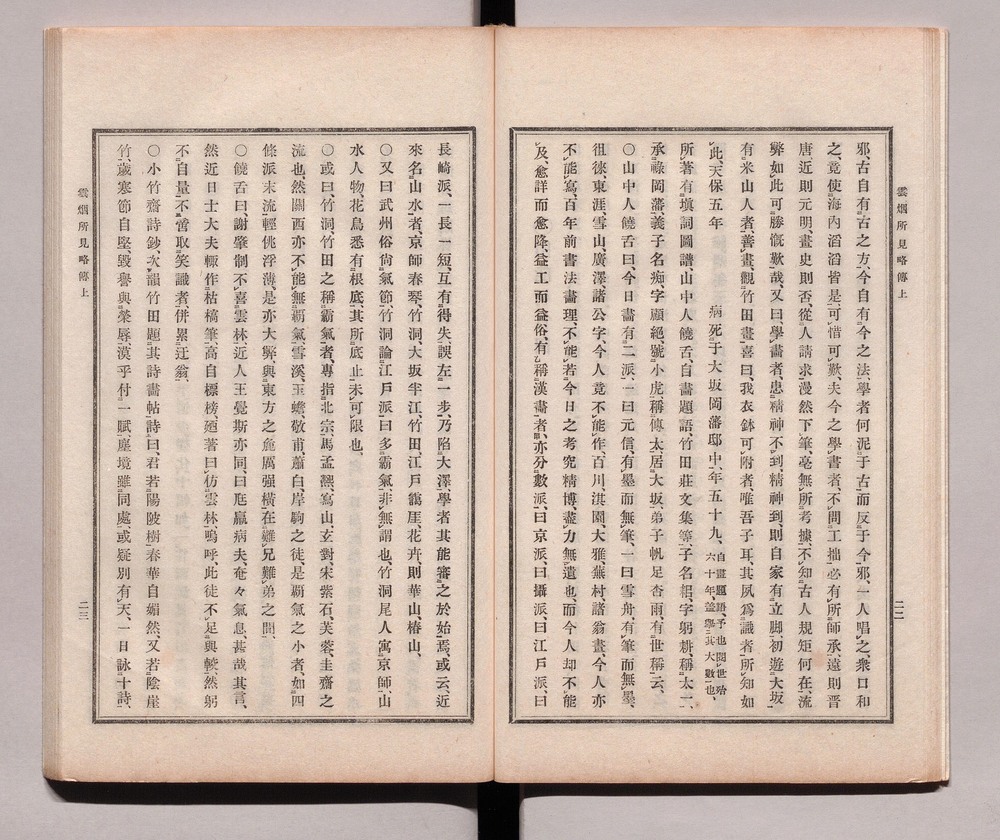 雲烟所見略傳上
二二
邪、古自有古之方、今自有今之法、學者何泥于古而反于今邪、一人唱之、衆口和
之、竟使海內滔滔皆是、可惜可歎、夫今之學書者、不問工拙、必有所師承、遠則晋
唐近則元明、畫史則否、從人請求漫然下筆、毫無所考據、不知古人規矩何在、流
弊如此可勝漑歎哉、又曰學畫者患精神不到、精神到則自家有立脚、初遊大坂
有米山人者、善畫、觀竹田畫喜曰、我衣鉢可附者、唯吾子耳、其夙爲識者所知如
此、天保五年 病死于大坂岡藩邸中、年五十九、自畫題語、予也閱世殆六十年、蓋擧其大數也、
所著有塡詞圖譜、山中人饒舌、自畫題語、竹田莊文集等、子名䂓、字躬耕、稱太一、
承祿岡藩、義子名痴、字顧絕、號小虎、稱傳太、居大坂、弟子帆足杏雨、有世稱云、
〇山中人饒舌曰、今日畫有二派、一曰元信、有墨而無筆、一曰雪舟、有筆而無墨、
徂徠、東涯、雪山、廣澤諸公字、今人竟不能作、百川、淇園、大雅、蕪村諸翁畫、今人亦
不能寫、百年前書法畫理、不能若今日之考究精博、盡力無遺也、而今人却不能
及、愈詳而愈降、益工而益俗、有稱漢畫者、亦分數派、曰京派、曰攝派、曰江戶派、曰
長崎派、一長一短、互有得失、誤左一步、乃陷大澤、學者其能審之於始焉、或云、近
來名山水者、京師春琴、竹洞、大坂半江、竹田、江戶靄厓、花卉則華山、椿山、
〇又曰武州俗尙氣節、竹洞論江戶派曰多霸氣、非無謂也、竹洞尾人寓京師、山
水人物花鳥悉有根底、其所底止未可限也、
〇或曰、竹洞、竹田之稱霸氣者、專指北宗、馬孟熙、寫山玄對、宋紫石、芙蓉、圭齋之
流也、然關西亦不能無覇氣、雪溪、玉蟾、敬甫、蕭白、岸駒之徒、是覇氣之小者、如四
條派末流、輕佻浮薄、是亦大弊、與東方之麁厲强橫、在難兄難弟之間、
〇饒舌曰、謝肇制不喜雲林、近人王覺斯亦同、曰尫羸病夫、奄々氣息、甚哉其言、
然近日士大夫輙作枯槁筆、高自標榜、廼著曰仿雲林、嗚呼、此徒不足與較、然躬
不自量、不啻取笑識者、併累迂翁、
〇小竹齋詩鈔、次韻竹田題其詩畫帖詩曰、君若陽陂樹、春華自媚然、又若陰崖
竹、歲寒節自堅、毀譽與榮辱、漠乎付一賦、塵境雖同處、或疑別有天、一日詠十詩、
雲烟所見略傳上
二三